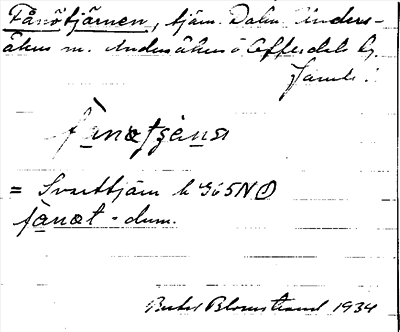 Fånötjärnen, tjärn. Dalm Unders-
åkers m. Undersåkers o Offerdals hg.
Jämtl.
fànøtʃæ̀ṇa
= Svarttjärn k 965NO
fànøt - dum.
Bertil Blomstrand 1934